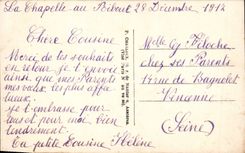 La Chapelle au Riboul 28 Décembre 1912
Chère Cousine
Merci de tes souhaits
en retour je t'envoie
ainsi que mes Parents
mes vœux les plus affec
tueux.
Je t'embrasse pour
tous et pour moi bien
tendrement.
Ta petite Cousine Hélène
Melle
chez ses Parents
rue de Bagnolet
Vincennes
(Seine)